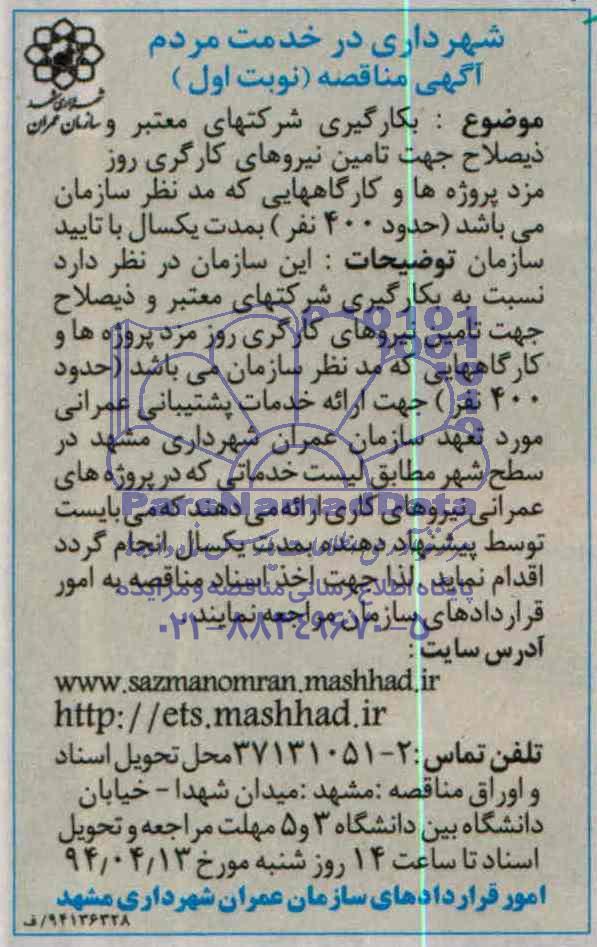 شهرداری در خدمت مردم
آگهی مناقصه (نوبت اول)
شهرداری مشهد
سازمان عمران
موضوع : بکارگیری شرکتهای معتبر و
ذیصلاح جهت تامین نیروهای کارگری روز
مزد پروژه ها و کارگاههایی که مد نظر سازمان
می باشد (حدود ۴۰۰ نفر) بمدت یکسال با تایید
سازمان توضیحات : این سازمان در نظر دارد
نسبت به بکارگیری شرکتهای معتبر و ذیصلاح
جهت تامین نیروهای کارگری روز مزد پروژه ها و
کارگاههایی که مد نظر سازمان می باشد (حدود
۴۰۰ نفر) جهت ارائه خدمات پشتیبانی عمرانی
مورد تعهد سازمان عمران شهرداری مشهد در
سطح شهر مطابق لیست خدماتی که در پروژه های
عمرانی نیروهای کاری ارائه می دهند که می بایست
توسط پیشنهاد دهنده بمدت یکسال انجام گردد
اقدام نماید. لذا جهت اخذ اسناد مناقصه به امور
قراردادهای سازمان مواجعه نمایند.
آدرس سایت :
www.sazmanomran.mashhad.ir
http://ets.mashhad.ir
تلفن تماس :۲-۳۷۱۳۱۰۵۱ محل تحویل اسناد
و اوراق مناقصه :مشهد :میدان شهدا - خیابان
دانشگاه بین دانشگاه ۳ و۵ مهلت مراجعه و تحویل
اسناد تا ساعت ۱۴ روز شنبه مورخ ۹۴٫۰۴٫۱۳
امور قراردادهای سازمان عمران شهرداری مشهد
۹۴۱۳۶۳۲۸/ف
ParsNamadData
پایگاه اطلاع رسانی مناقصه و مزایده
۰۲۱-۸۸۳۴۹۶۷۰-۵